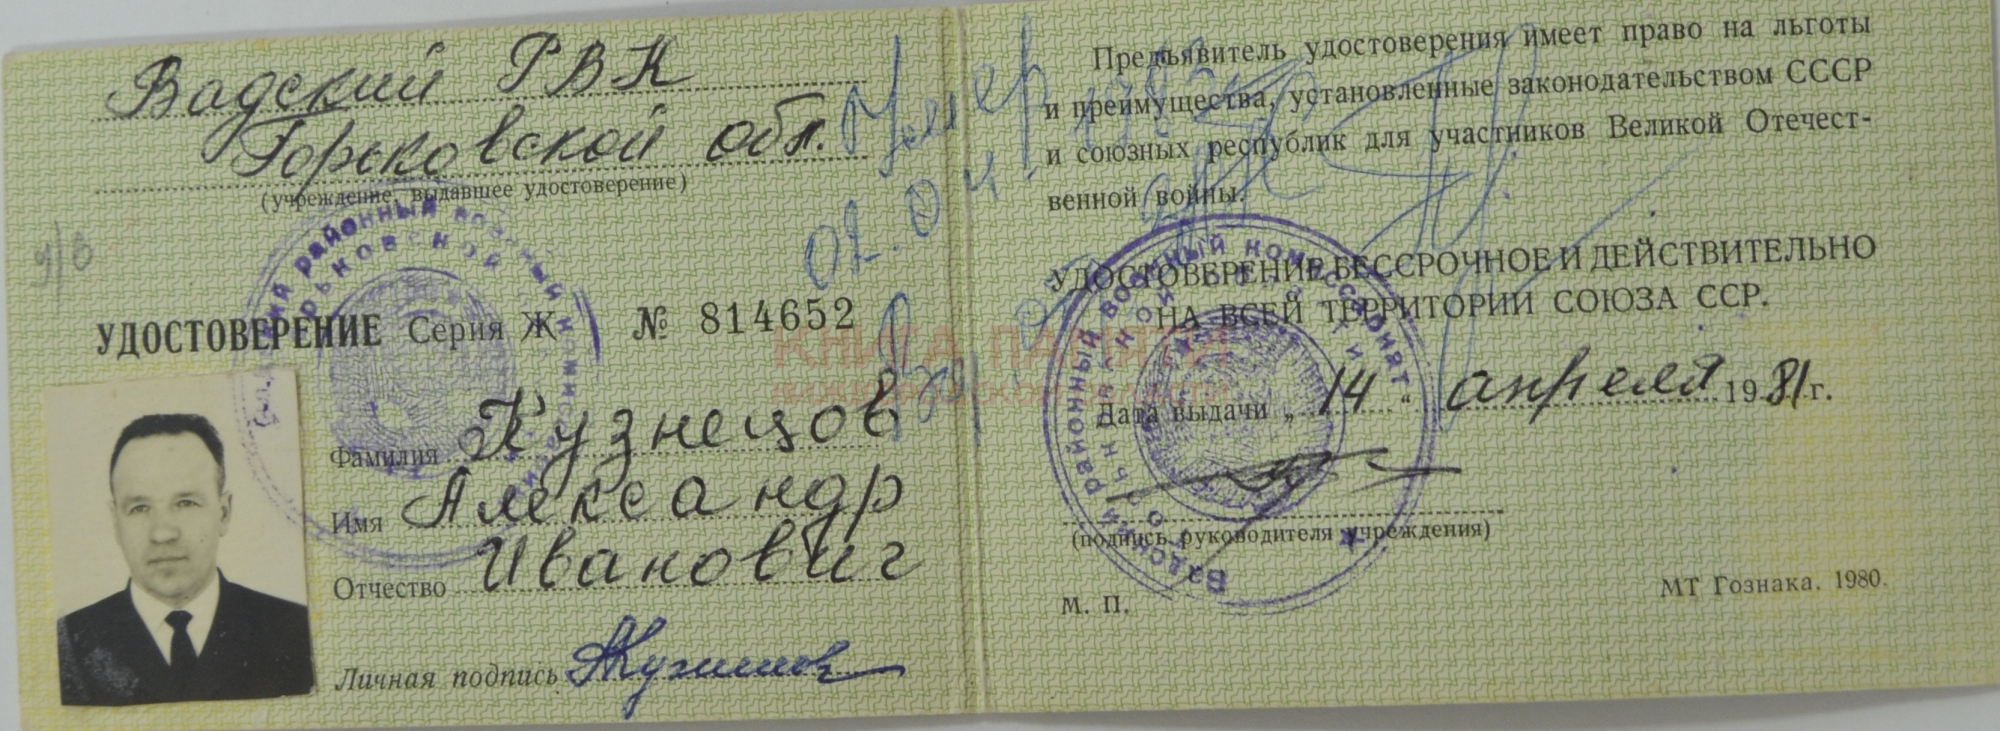 Вадский РВК
Горьковской обл.
(учреждение, выдавшее удостоверение)
УДОСТОВЕРЕНИЕ Серия Ж № 814652
Фамилия Кузнецов
Имя Александр
Отчество Иванович
Личная подпись
Умер
02.04.
Предъявитель удостоверения имеет право на льготы
и преимущества, установленные законодательством СССР
и союзных республик для участников Великой Отечест-
венной войны.
УДОСТОВЕРЕНИЕ БЕССРОЧНОЕ И ДЕЙСТВИТЕЛЬНО
НА ВСЕЙ ТЕРРИТОРИИ СОЮЗА ССР.
Дата выдачи „ 14 " апреля 1981 г.
(подпись руководителя учреждения)
М. П.
МТ Гознака. 1980.
Вадский районный военный комиссариат
КНИГА ПАМЯТИ
НИЖЕГОРОДСКОЙ ОБЛАСТИ